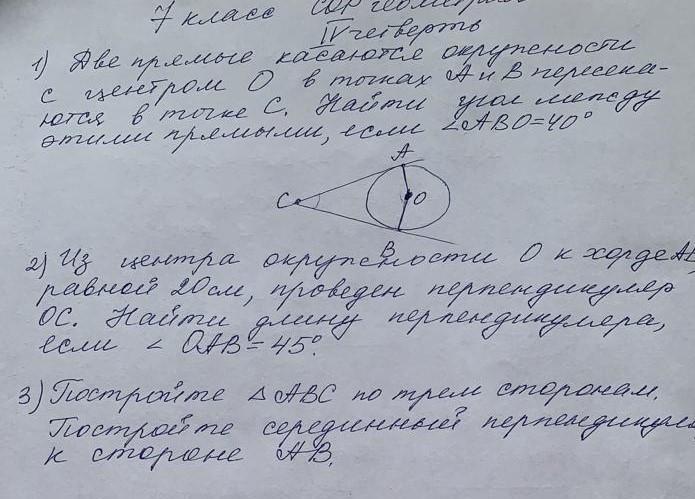 7 класс СОР геометрия
IV четверть
1) Две прямые касаются окружности
с центром О в точках А и В пересека-
ются в точке С. Найти угол между
этими прямыми, если ∠АВО=40°
А
С
О
В
2) Из центра окружности О к хорде АВ
равной 20см, проведен перпендикуляр
ОС. Найти длину перпендикуляра,
если ∠ ОАВ=45°.
3) Постройте △АВС по трем сторонам.
Постройте серединный перпендикуляр
к стороне АВ.